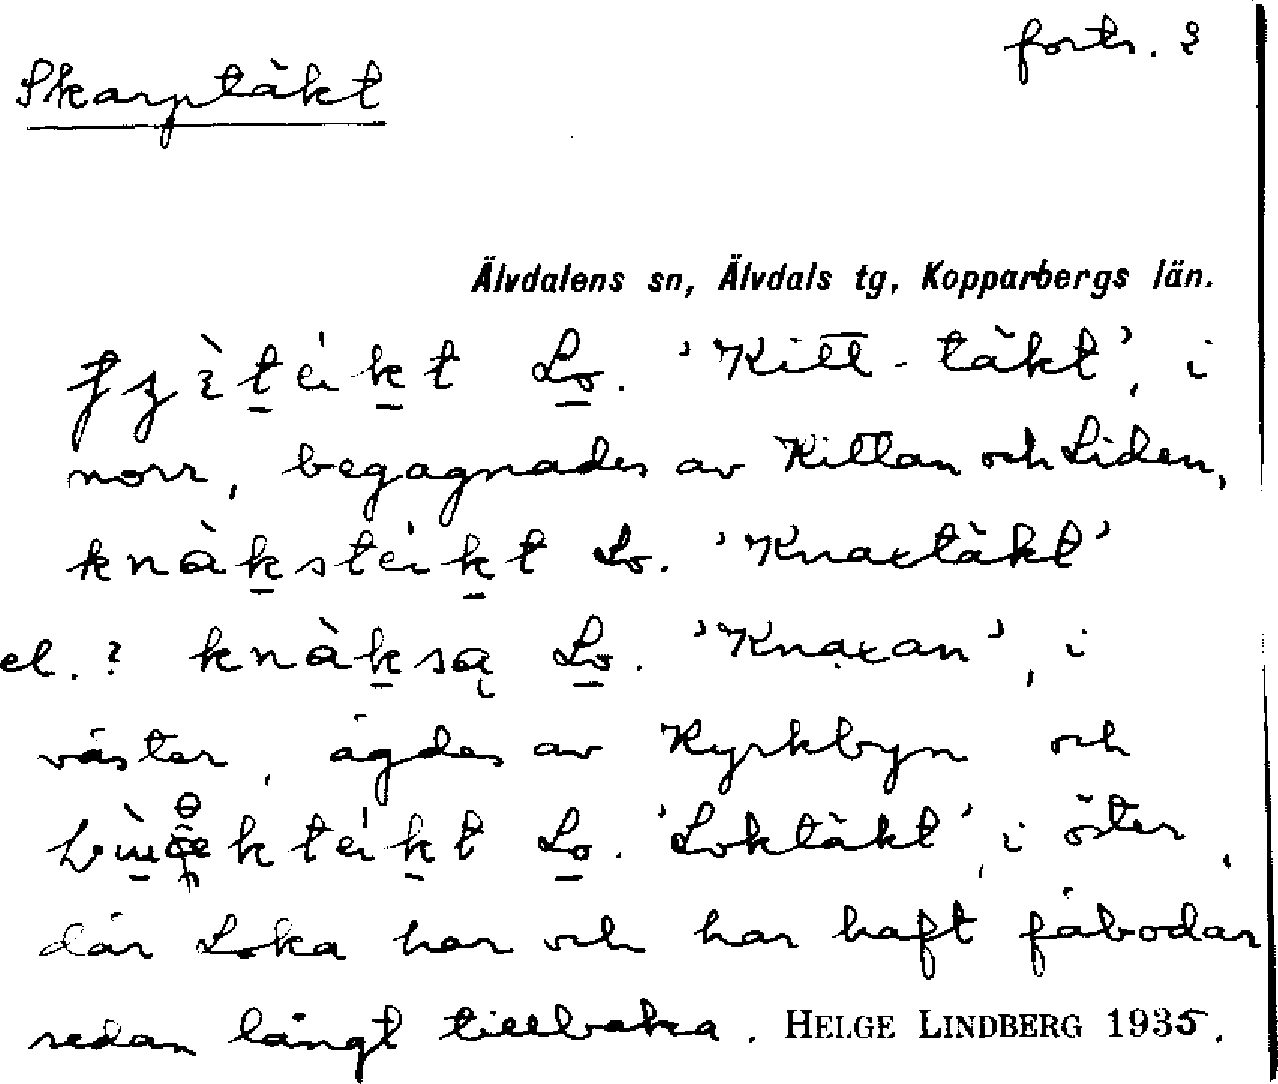 forts. 2
Skarptäkt
Älvdalens sn, Älvdals tg, Kopparbergs län.
Lo. 'Kitt-täkt', i
norr, begagnades av Kittan och Liden,
knàksteikt Lo. 'Knaxtäkt'
el. ? knàksą Lo. 'Knaxan', i
väster, ägdes av Kyrkbyn och
Lo. 'Loktäkt', i öster,
där Loka har och har haft fäbodar
sedan långt tillbaka. HELGE LINDBERG 1935.